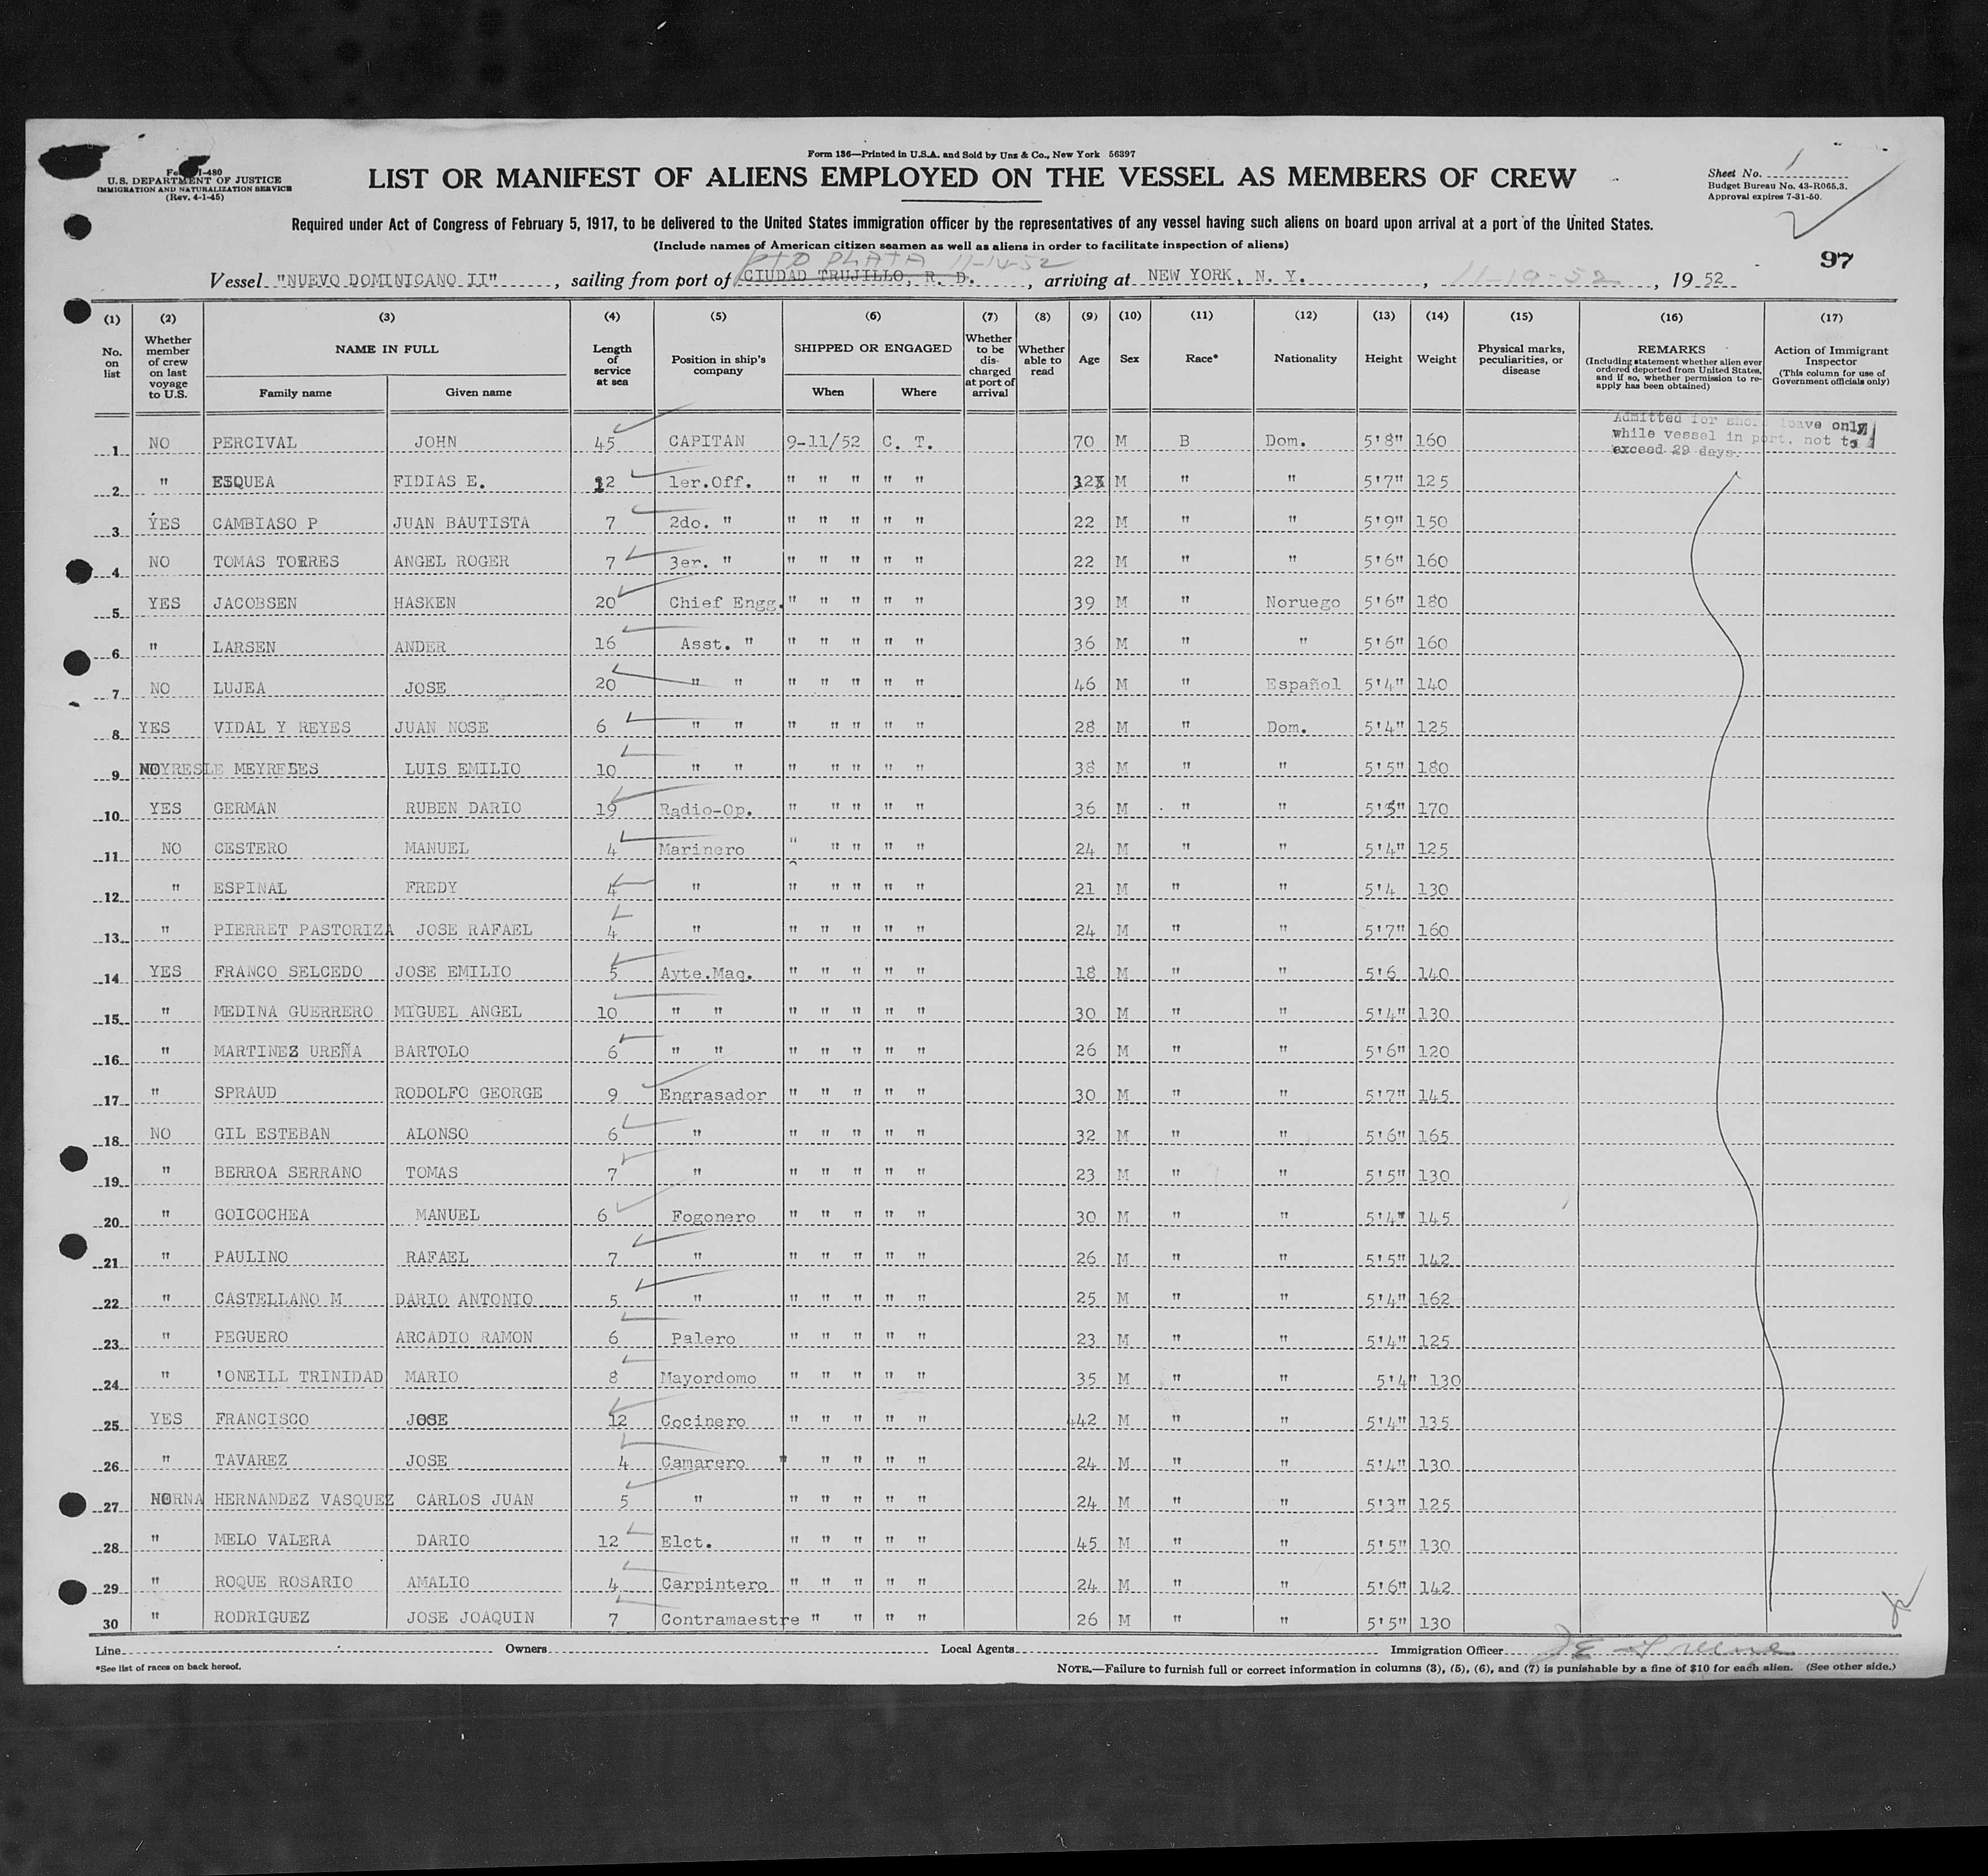 Form 136—Printed in U.S.A. and Sold by Unz & Co., New York 56397
I-480
U.S. DEPARTMENT OF JUSTICE
IMMIGRATION AND NATURALIZATION SERVICE
(Rev. 4-1-45)
LIST OR MANIFEST OF ALIENS EMPLOYED ON THE VESSEL AS MEMBERS OF CREW
Sheet No. 1
Budget Bureau No. 43-R065.3.
Approval expires 7-31-50.
Required under Act of Congress of February 5, 1917, to be delivered to the United States immigration officer by the representatives of any vessel having such aliens on board upon arrival at a port of the United States.
(Include names of American citizen seamen as well as aliens in order to facilitate inspection of aliens)
97
PTO PLATA 11-14-52
Vessel "NUEVO DOMINICANO II", sailing from port of CIUDAD TRUJILLO, R. D., arriving at NEW YORK, N. Y., 11-19-52, 1952
(1) No. on list
(2) Whether member of crew on last voyage to U.S.
(3) NAME IN FULL Family name Given name
(4) Length of service at sea
(5) Position in ship's company
(6) SHIPPED OR ENGAGED When Where
(7) Whether to be discharged at port of arrival
(8) Whether able to read
(9) Age
(10) Sex
(11) Race*
(12) Nationality
(13) Height
(14) Weight
(15) Physical marks, peculiarities, or disease
(16) REMARKS (Including statement whether alien ever ordered deported from United States, and if so, whether permission to reapply has been obtained)
(17) Action of Immigrant Inspector (This column for use of Government officials only)
Admitted for shore leave only
while vessel in port, not to
exceed 29 days.
1 NO PERCIVAL JOHN 45 CAPITAN 9-11/52 C. T. 70 M B Dom. 5'8" 160
2 " ESQUEA FIDIAS E. 12 1er.Off. " " " " " 32 M " " 5'7" 125
3 YES CAMBIASO P JUAN BAUTISTA 7 2do. " " " " " " 22 M " " 5'9" 150
4 NO TOMAS TORRES ANGEL ROGER 7 3er. " " " " " " 22 M " " 5'6" 160
5 YES JACOBSEN HASKEN 20 Chief Engg. " " " " " 39 M " Noruego 5'6" 180
6 " LARSEN ANDER 16 Asst. " " " " " " 36 M " " 5'6" 160
7 NO LUJEA JOSE 20 " " " " " " " 46 M " Español 5'4" 140
8 YES VIDAL Y REYES JUAN NOSE 6 " " " " " " " 28 M " Dom. 5'4" 125
9 NO MEYRELES LUIS EMILIO 10 " " " " " " " 38 M " " 5'5" 180
10 YES GERMAN RUBEN DARIO 19 Radio-Op. " " " " " 36 M " " 5'5" 170
11 NO CESTERO MANUEL 4 Marinero " " " " " 24 M " " 5'4" 125
12 " ESPINAL FREDY 4 " " " " " " 21 M " " 5'4 130
13 " PIERRET PASTORIZA JOSE RAFAEL 4 " " " " " " 24 M " " 5'7" 160
14 YES FRANCO SELCEDO JOSE EMILIO 5 Ayte.Maq. " " " " " 18 M " " 5'6 140
15 " MEDINA GUERRERO MIGUEL ANGEL 10 " " " " " " " 30 M " " 5'4" 130
16 " MARTINEZ UREÑA BARTOLO 6 " " " " " " " 26 M " " 5'6" 120
17 " SPRAUD RODOLFO GEORGE 9 Engrasador " " " " " 30 M " " 5'7" 145
18 NO GIL ESTEBAN ALONSO 6 " " " " " " 32 M " " 5'6" 165
19 " BERROA SERRANO TOMAS 7 " " " " " " 23 M " " 5'5" 130
20 " GOICOCHEA MANUEL 6 Fogonero " " " " " 30 M " " 5'4" 145
21 " PAULINO RAFAEL 7 " " " " " " 26 M " " 5'5" 142
22 " CASTELLANO M DARIO ANTONIO 5 " " " " " " 25 M " " 5'4" 162
23 " PEGUERO ARCADIO RAMON 6 Palero " " " " " 23 M " " 5'4" 125
24 " 'ONEILL TRINIDAD MARIO 8 Mayordomo " " " " " 35 M " " 5'4" 130
25 YES FRANCISCO JOSE 12 Cocinero " " " " " 442 M " " 5'4" 135
26 " TAVAREZ JOSE 4 Camarero " " " " " 24 M " " 5'4" 130
27 NO HERNANDEZ VASQUEZ CARLOS JUAN 5 " " " " " " 24 M " " 5'3" 125
28 " MELO VALERA DARIO 12 Elct. " " " " " 45 M " " 5'5" 130
29 " ROQUE ROSARIO AMALIO 4 Carpintero " " " " " 24 M " " 5'6" 142
30 " RODRIGUEZ JOSE JOAQUIN 7 Contramaestre " " " " 26 M " " 5'5" 130
Line Owners Local Agents Immigration Officer J E Greene
*See list of races on back hereof.
NOTE.—Failure to furnish full or correct information in columns (3), (5), (6), and (7) is punishable by a fine of $10 for each alien. (See other side.)